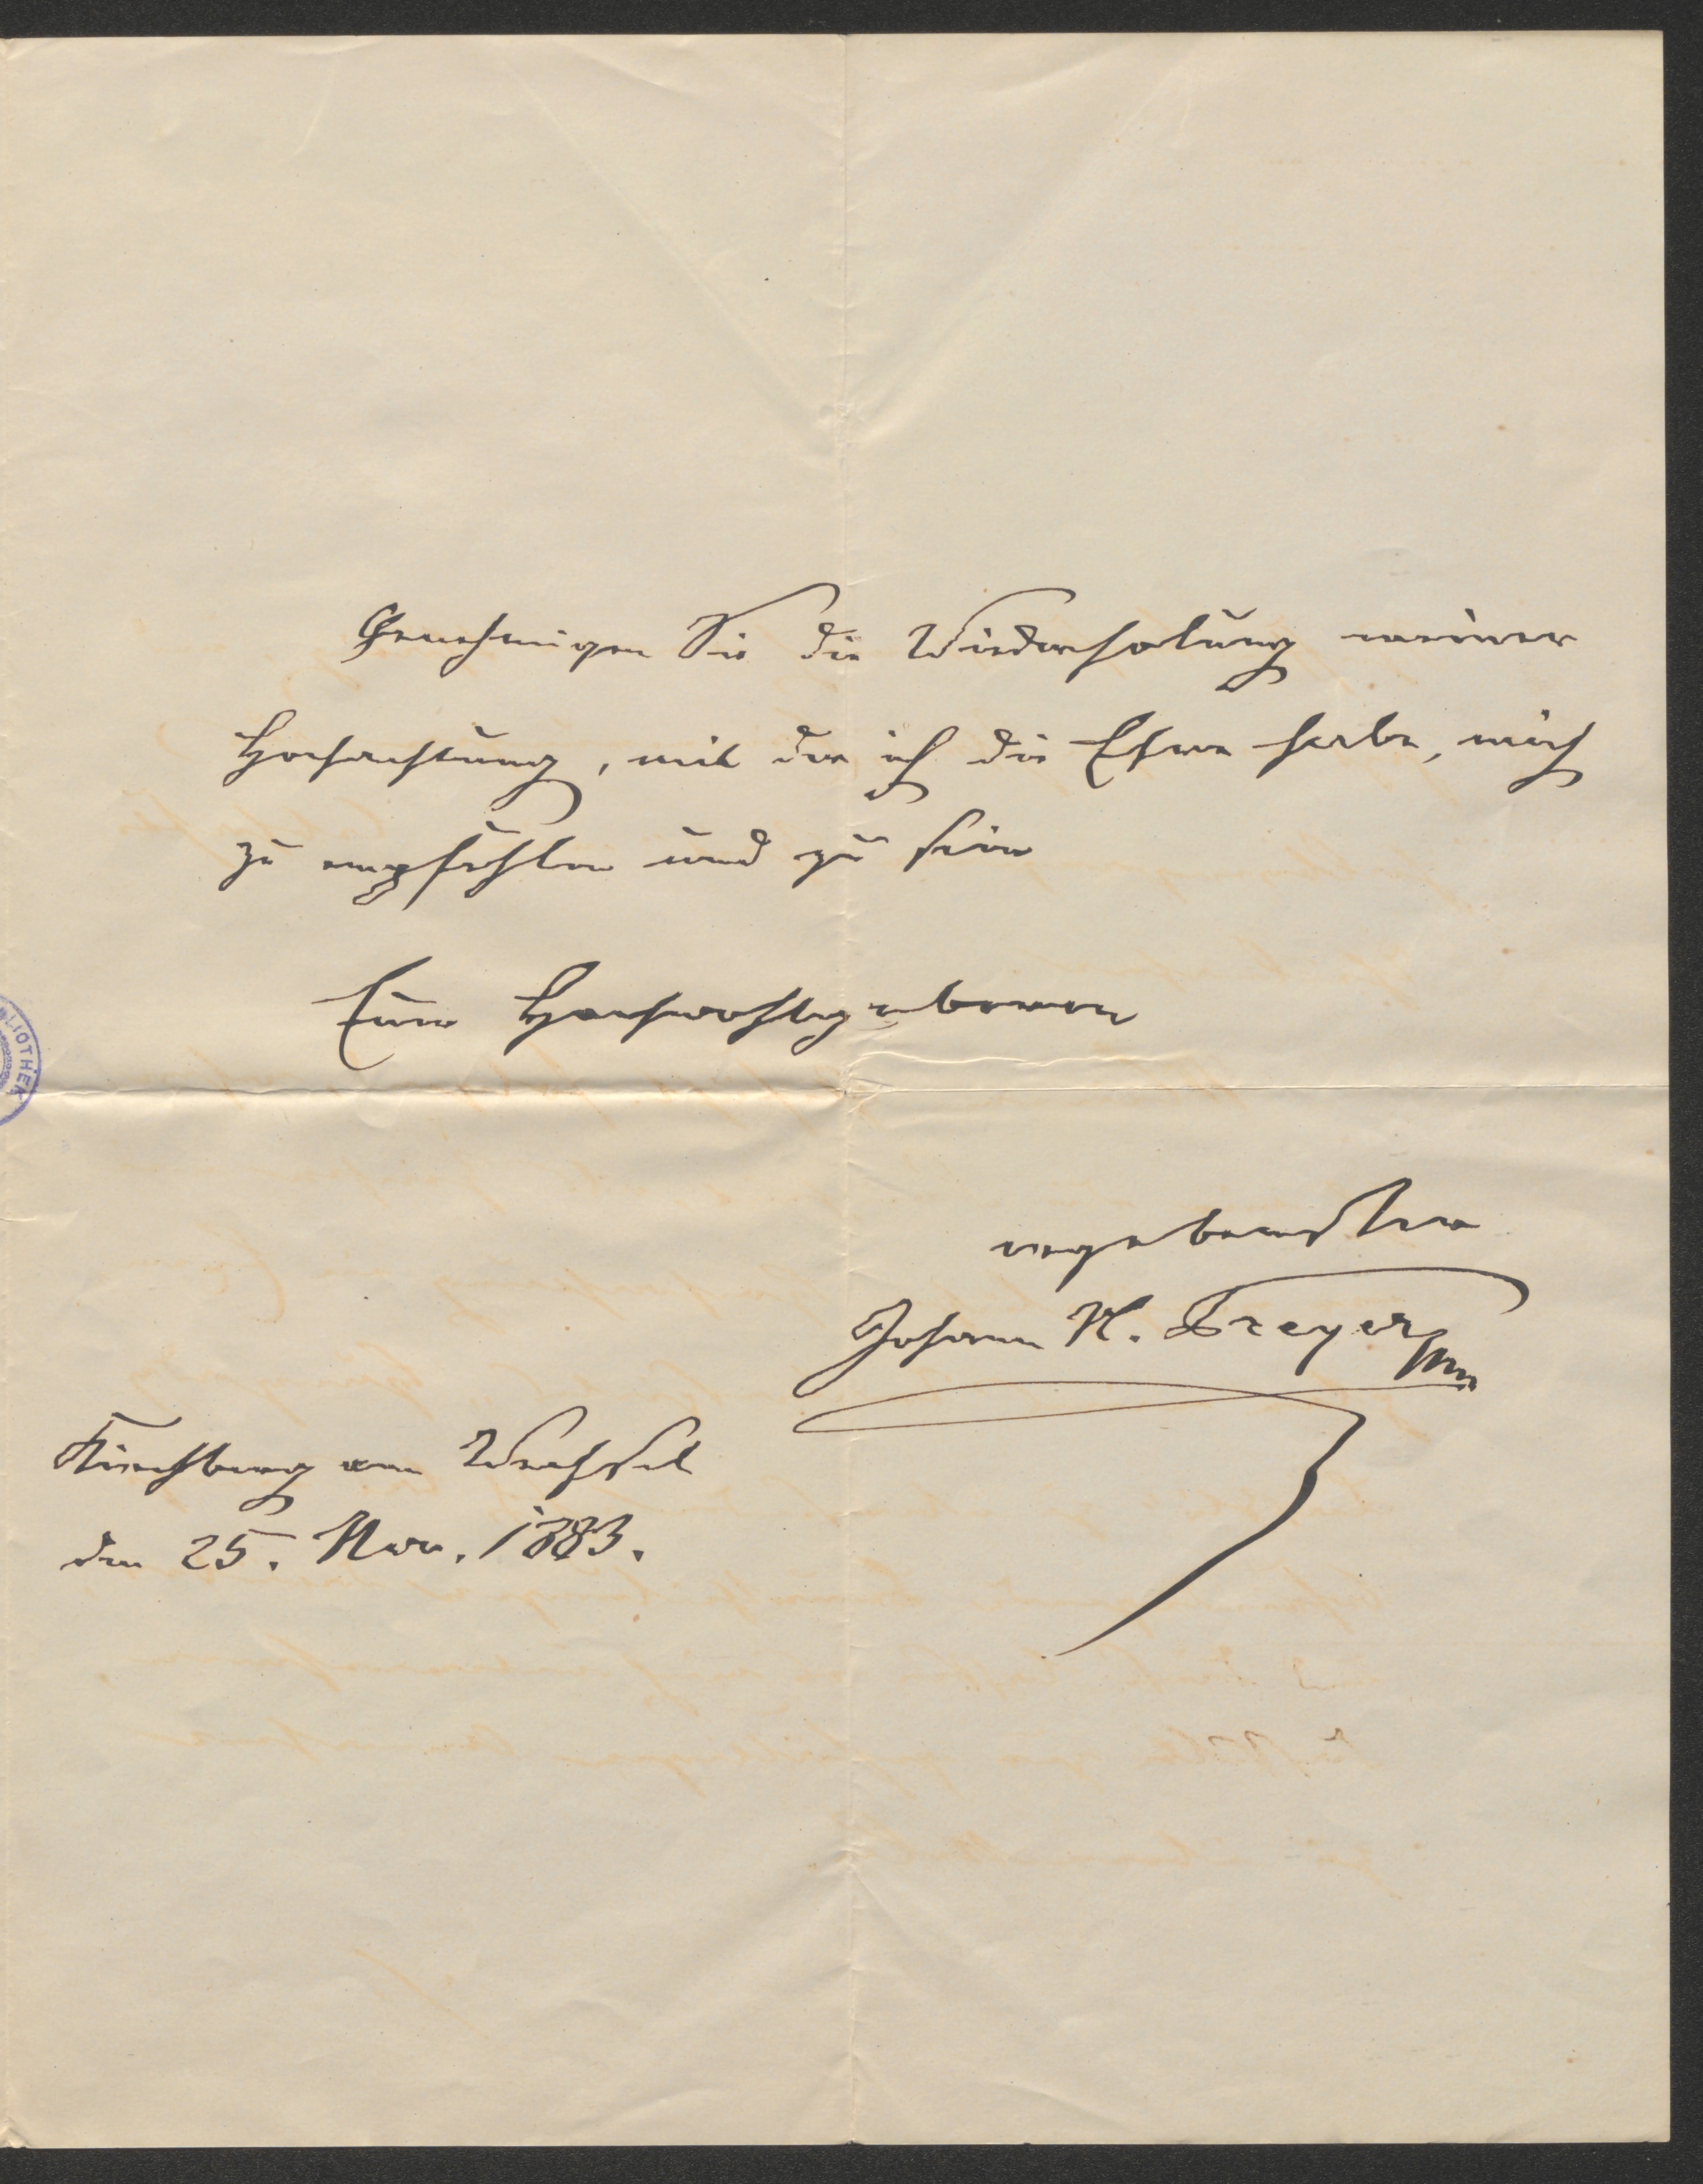 Genehmigen Sie die Wiederholung meiner
Hochachtung, mit der ich die Ehre habe, mich
zu empfehlen und zu sein
Euer Hochwohlgeboren
ergebenster
Johann N. Freyer
Kirchberg am Wechsel
den 25. Nov. 1883.
LIOTHEK